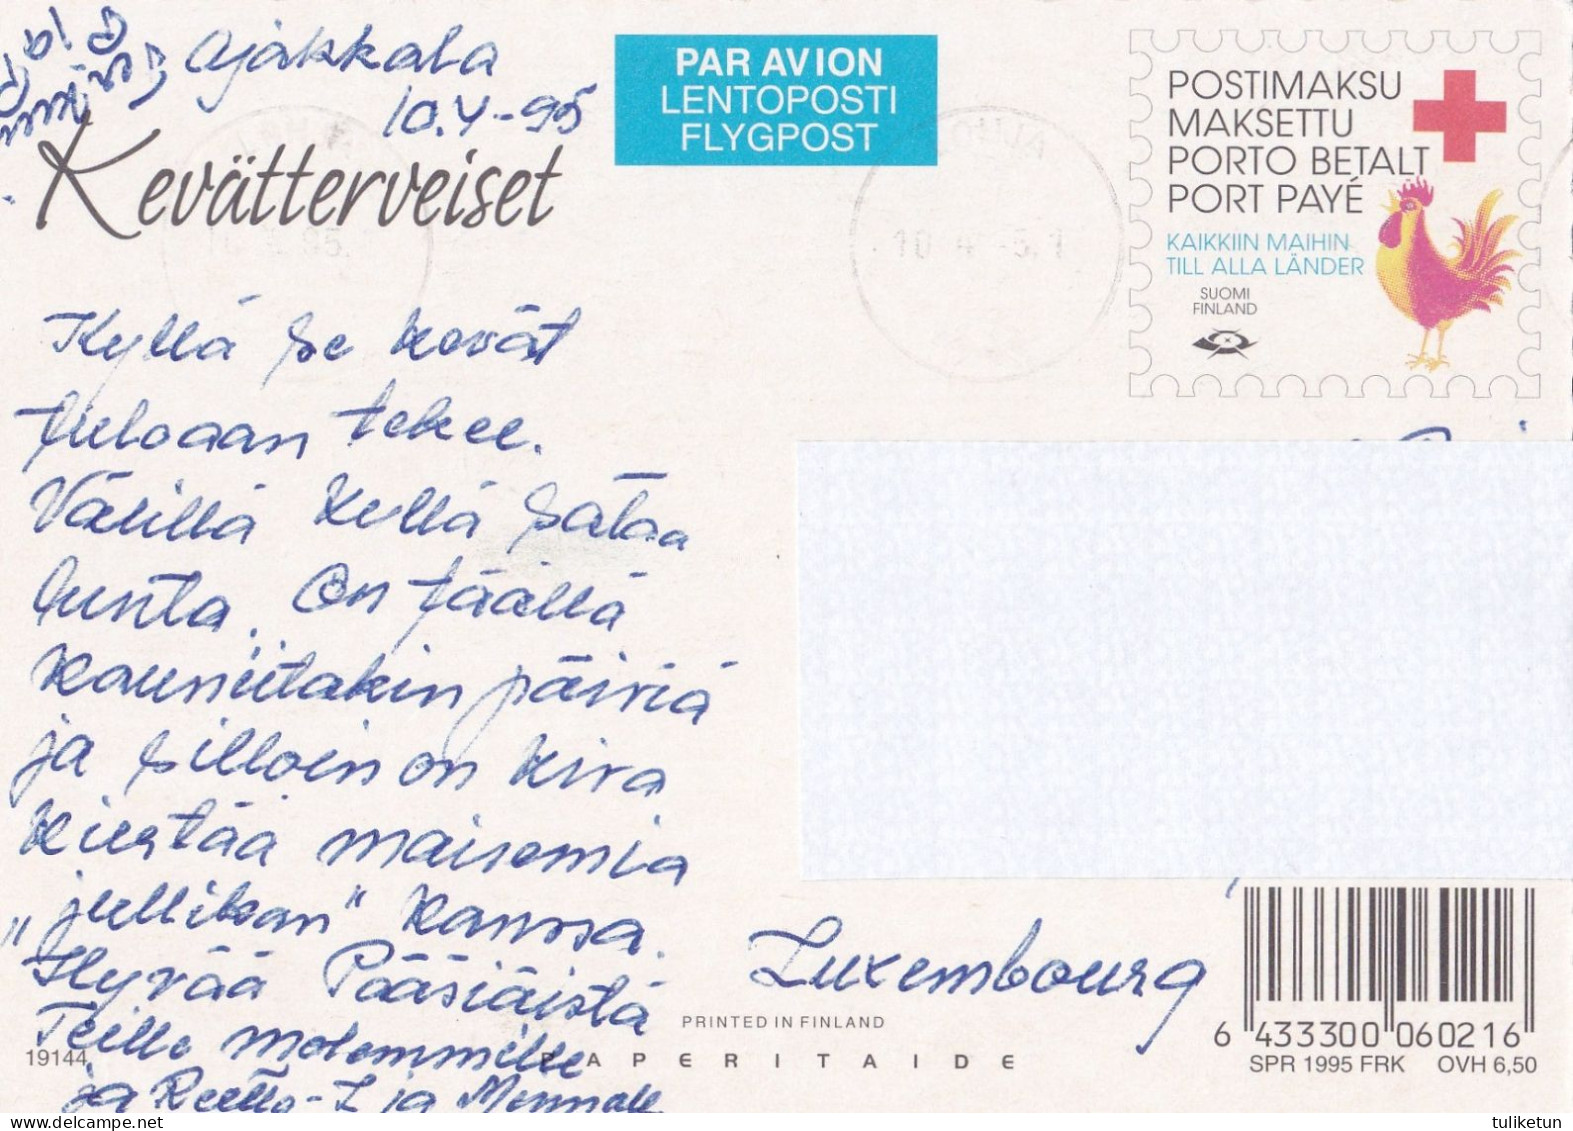 Ajakkala
10.4-95
Kevätterveiset
PAR AVION
LENTOPOSTI
FLYGPOST
POSTIMAKSU
MAKSETTU
PORTO BETALT
PORT PAYÉ
KAIKKIIN MAIHIN
TILL ALLA LÄNDER
SUOMI
FINLAND
Kyllä se kevät
tuloaan tekee.
Välillä kyllä sataa
lunta. On täällä
kauniitakin päiviä
ja silloin on kiva
kiertää maisemia
„jullikan" kanssa.
Hyvää Pääsiäistä
Teille molemmille
ja
ja
Luxembourg
PRINTED IN FINLAND
19144
PAPERITAIDE
6 433300 060216
SPR 1995 FRK OVH 6,50
tuliketun